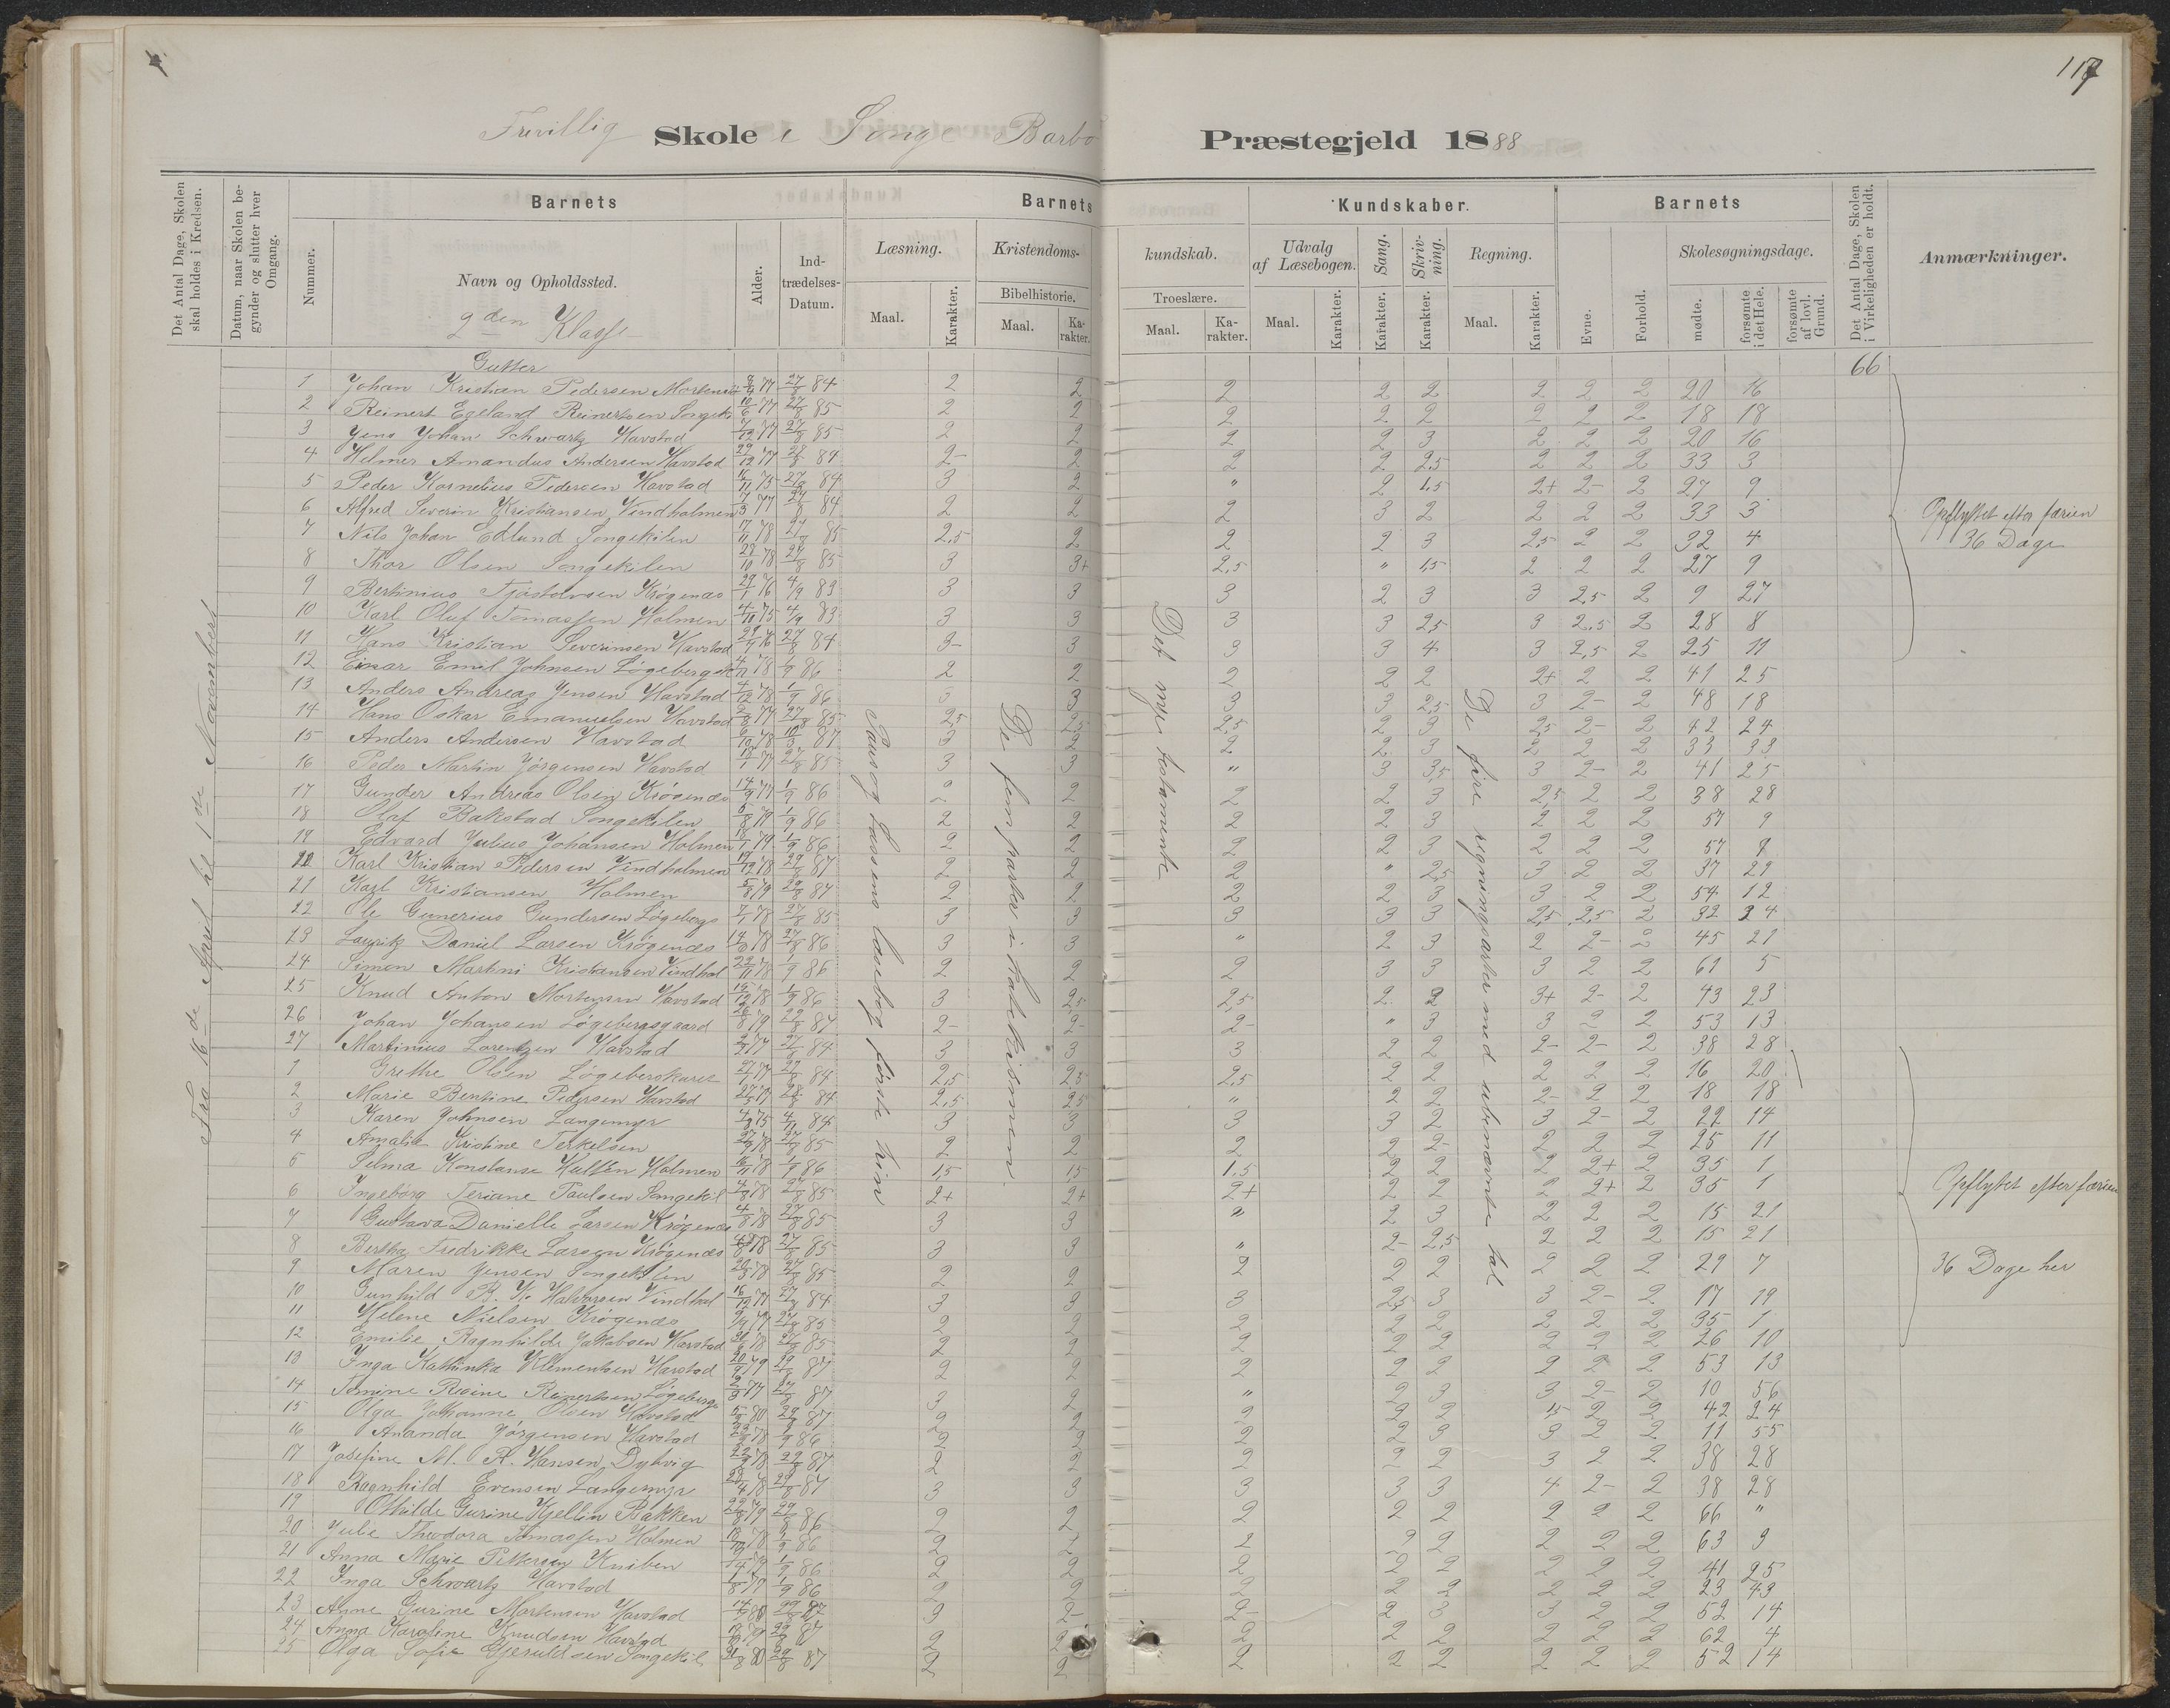 117
Frivillig Skole i Songe Barbo Præstegjeld 1888
Det Antal Dage, Skolen skal holdes i Kredsen.
Datum, naar Skolen begynder og slutter hver Omgang.
Barnets
Nummer.
Navn og Opholdssted.
2den Klasse
Alder.
Indtrædelses-Datum.
Barnets
Læsning.
Maal.
Karakter.
Kristendoms-
Bibelhistorie.
Maal.
Karakter.
kundskab.
Troeslære.
Maal.
Karakter.
Kundskaber.
Udvalg af Læsebogen.
Maal.
Karakter.
Sang.
Karakter.
Skrivning.
Karakter.
Regning.
Maal.
Karakter.
Barnets
Evne.
Forhold.
Skolesøgningsdage.
mødte.
forsømte i det Hele.
forsømte af lovl. Grund.
Det Antal Dage, Skolen i Virkeligheden er holdt.
Anmærkninger.
66
Fra 16de April til 1ste November
Pauss og Lassens læsebog første trin
De fem parter i katekismen.
Det nye testamente
De fire regningsarter med ubenævnte tal
Gutter
1 Johan Kristian Pedersen 27/8 84 2 2 2 2 2 2 2 2 20 16
2 Reinert Egeland Reinertsen 27/8 85 2 2 2 2 2 2 2 2 18 18
3 Jens Johan Schwartz Havstad 27/8 85 2 2 2 2 3 2 2 2 20 16
4 Helmer Amandus Andersen Havstad 84 2- 2 2 2 2,5 2 2 2 33 3
5 Peder Kornelius Pedersen Havstad 27/8 84 3 2 " 2 1,5 2+ 2- 2 27 9
6 Alfred Severin Kristiansen Vindholmen 27/8 84 2 2 2 3 2 2 2 2 33 3
7 Nils Johan Edlund Songekilen 85 2,5 2 2 2 3 2,5 2 2 32 4
8 Thor Olsen Songekilen 27/8 85 3 3+ 2,5 " 1,5 2 2 2 27 9
9 Bertinius Krøgenæs 4/9 83 3 3 3 2 3 3 2,5 2 9 27
10 Karl Oluf Tomassen Holmen 4/9 83 3 3 3 3 2,5 3 2,5 2 28 8
11 Hans Kristian Severinsen Havstad 27/8 84 3- 3 3 3 4 3 2,5 2 25 11
12 Einar Emil Johnsen 1/9 86 2 2 2 2 2 2+ 2 2 41 25
13 Anders Andreas Jensen Havstad 1/9 86 3 3 3 3 2,5 3 2- 2 48 18
14 Hans Oskar Emanuelsen Havstad 27/8 85 2,5 2,5 2,5 2 3 2,5 2- 2 42 24
15 Anders Andersen Havstad 87 3 2 2 2 3 2 2 2 33 33
16 Peder Martin Jørgensen Havstad 27/8 85 3 3 " 3 3,5 3 2- 2 41 25
17 Gunder Andreas Olsen Krøgenæs 1/9 86 2 2 2 2 3 2,5 2 2 38 28
18 Olaf Bakstad Songekilen 1/9 86 2 2 2 2 3 2 2 2 57 9
19 Edvard Julius Johansen Holmen 1/9 86 2 2 2 2 3 2 2 2 57
20 Karl Kristian Pedersen Vindholmen 29/8 87 2 2 2 " 2,5 3 2 2 37 29
21 Karl Kristiansen Holmen 29/8 87 2 2 2 2 3 3 2 2 54 12
22 Ole Gunerius Gundersen Løgeberg 27/8 85 3 3 3 3 3 2,5 2,5 2 32 34
23 Lauritz Daniel Larsen Krøgenæs 86 3 3 " 2 3 2 2- 2 45 21
24 Simon Martini Kristiansen Vindhol 1/9 86 2 2 2 3 3 3 2 2 61 5
25 Knud Anton Mortensen Havstad 1/9 86 3 2,5 2,5 2 2 3+ 2- 2 43 23
26 Johan Johansen Løgebergsgaard 29/8 87 2- 2- 2- " 3 3 2 2 53 13
27 Martinius Lorentzen Havstad 27/8 84 3 3 3 2 2 2- 2- 2 38 28
1 Grethe Olsen 27/8 84 2,5 2,5 2,5 2 2 2 2 2 16 20
2 Marie Bentine Pedersen Havstad 84 2,5 2,5 " 2 2 2- 2 2 18 18
3 Karen Johnsen Langemyr 84 3 3 3 3 2 3 2- 2 22 14
4 Amalie Kristine Terkelsen 27/8 85 2 2 2 2 2- 2 2 2 25 11
5 Selma Konstanse Hultén Holmen 1/9 86 1,5 1,5 1,5 2 2 2 2+ 2 35 1
6 Ingeborg Teriane Paulsen Songekil 27/8 85 2+ 2+ 2+ 2 2 2 2+ 2 35 1
7 Gustava Danielle Larsen Krøgenæs 27/8 85 3 3 " 2 3 2 2 2 15 21
8 Bertha Fredrikke Larsen Krøgenæs 27/8 85 3 3 " 2- 2,5 2 2 2 15 21
9 Maren Jensen Songekilen 27/8 85 2 2 2 2 2 2 2 2 29 7
10 Gunhild Halvorsen Vindhol 27/8 84 3 3 3 2,5 3 3 2- 2 17 19
11 Helene Nielsen Krøgenæs 27/8 85 2 2 2 2 2 2 2 2 35 1
12 Emilie Ragnhilde Jakobsen Havstad 27/8 85 2 2 2 2 2 2 2 2 26 10
13 Inga Kathinka Klementsen Havstad 29/8 87 2 2 2 2 2 2 2 2 53 13
14 Reinertsen Løgeberg 87 3 2 " 2 3 3 2- 2 10 56
15 Olga Johanne Olsen Havstad 29/8 87 2 2 2 2 2 2 2 42 24
16 Ananda Jørgensen Havstad 1/9 86 2 2 2 2 3 3 2 2 11 55
17 Josefine M. R. Hansen Dybvig 29/8 87 2 2 2 2 2 3 2 2 38 28
18 Ragnhild Evensen Langemyr 29/8 87 3 3 3 3 3 4 2- 2 38 28
19 Othilde Gurine Kjellin Bakken 86 2 2 2 2 2 2 2 2 66 "
20 Julie Theodora Tomassen Holmen 1/9 86 2 2 2 2 2 2 2 2 63 3
21 Anna Marie Pettersen Kniben 1/9 86 2 2 2 2 2 2 2 2 41 25
22 Inga Schwartz Havstad 1/9 86 2 2 2 2 2 2 2 2 23 43
23 Anne Gurine Mortensen Havstad 29/8 87 3 2- 2- 2 3 3 2 2 52 14
24 Anna Karoline Knudsen Havstad 29/8 87 2 2 2 2 2 2 2 2 62 4
25 Olga Sofie Gjeruldsen Songekil 29/8 87 2 2 2 2 2 2 2 2 52 14
Opflyttet efter færien
36 Dage
Opflyttet efter færien
36 Dage her